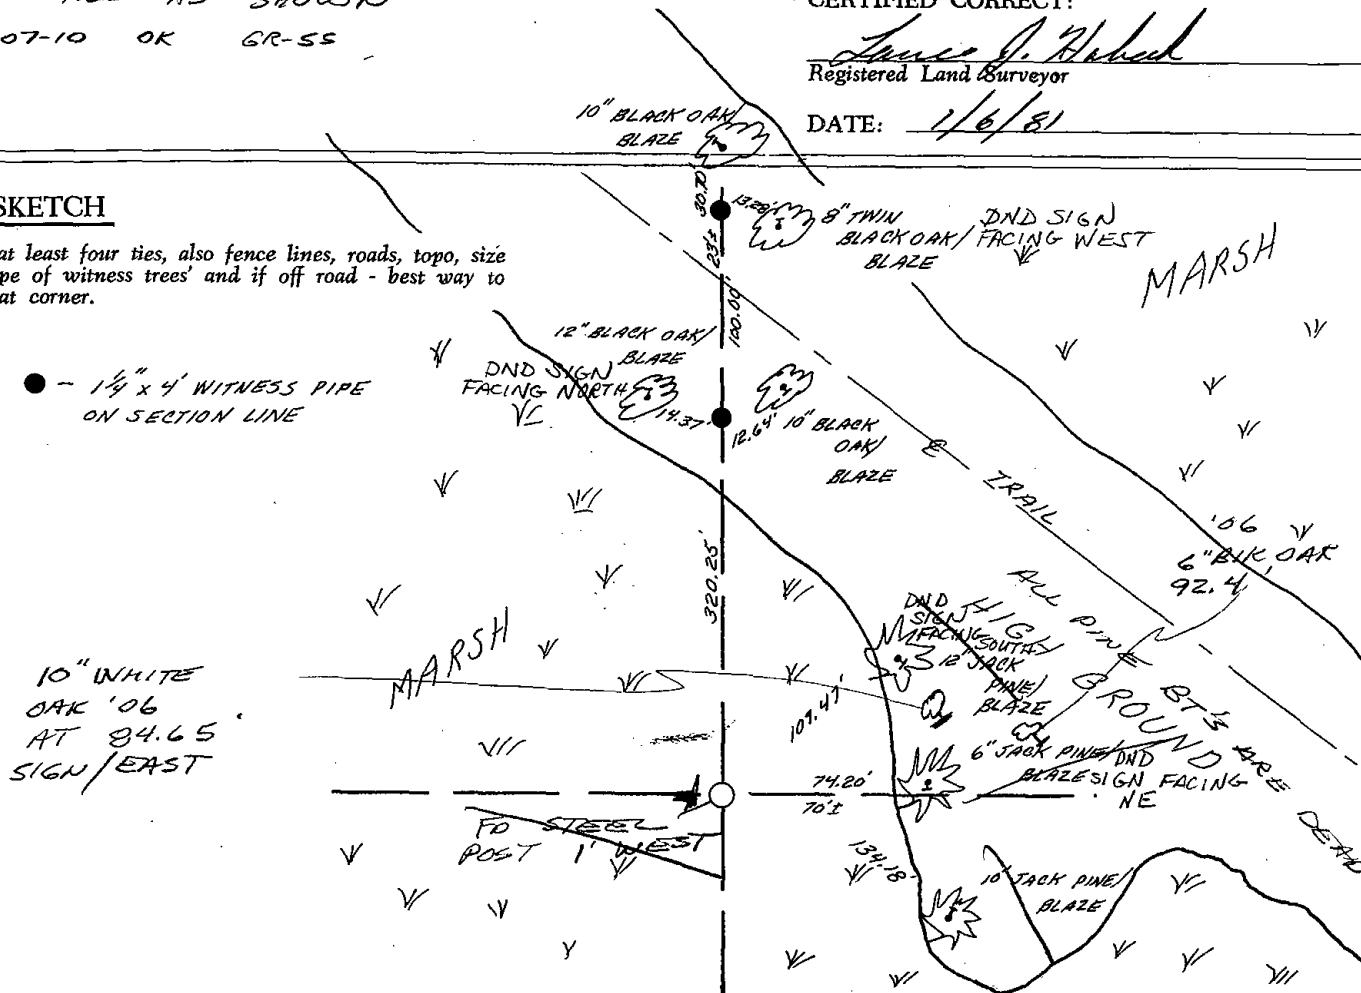 ALL AS SHOWN
07-10 OK GR-SS
CERTIFIED CORRECT:
Registered Land Surveyor
DATE: 1/6/81
SKETCH
at least four ties, also fence lines, roads, topo, size
pe of witness trees' and if off road - best way to
at corner.
● - 1¼" x 4' WITNESS PIPE
ON SECTION LINE
10" BLACK OAK/
BLAZE
30.70'
13.28'
8" TWIN
BLACK OAK/
BLAZE
DND SIGN
FACING WEST
MARSH
23±
100.00'
12" BLACK OAK/
BLAZE
DND SIGN
FACING NORTH
14.37'
12.64'
10" BLACK
OAK/
BLAZE
℄ TRAIL
'06
6" BLK OAK
92.4'
320.25'
ALL PINE BT'S ARE DEAD
HIGH GROUND
DND
SIGN
FACING SOUTH/
12" JACK
PINE/
BLAZE
MARSH
10" WHITE
OAK '06
AT 84.65
SIGN/EAST
109.47'
6" JACK PINE/
BLAZE
DND
SIGN FACING
NE
74.20'
70'±
FD STEEL
POST 1' WEST
134.18'
10" JACK PINE/
BLAZE